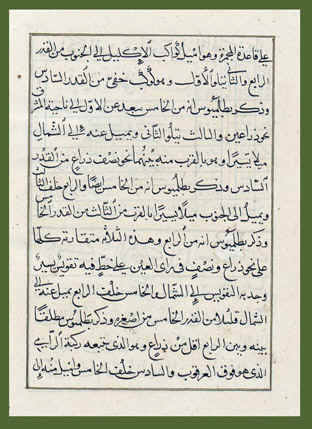 على قاعدة المجرة وهو مائل كواكب الاكليل الى الجنوب من القدر
الرابع والثانى يتلوا الاول وهو كوكب خفى من القدر السادس
وذكر بطلميوس انه من الخامس يبعد عن الاول الى ناحية المشرق
نحو ذراعين والثالث يتلو الثانى ويميل عنه الى الشمال
ميلا يسيرا وهو بالقرب منه بينهما نحو نصف ذراع من القدر
السادس وذكر بطلميوس انه من الخامس ايضا والرابع خلف الثالث
ويميل الى الجنوب ميلا يسيرا بالقرب من الثالث من القدر الخامس
وذكر بطلميوس انه من الرابع وهذه الثلاثة متقاربة كلها
على نحو ذراع ونصف فى راى العين على خط فيه تقويس يسير
وحدبة التقويس الى الشمال والخامس خلف الرابع يميل عنه الى
الشمال قليلا من القدر الخامس من اصغره وذكر بطلميوس مطلقا
بينه وبين الرابع اقل من ذراع وهو الذى يتبعه ركبة الرامى
الذى هو فوق العرقوب والسادس خلف الخامس واميل منه الى